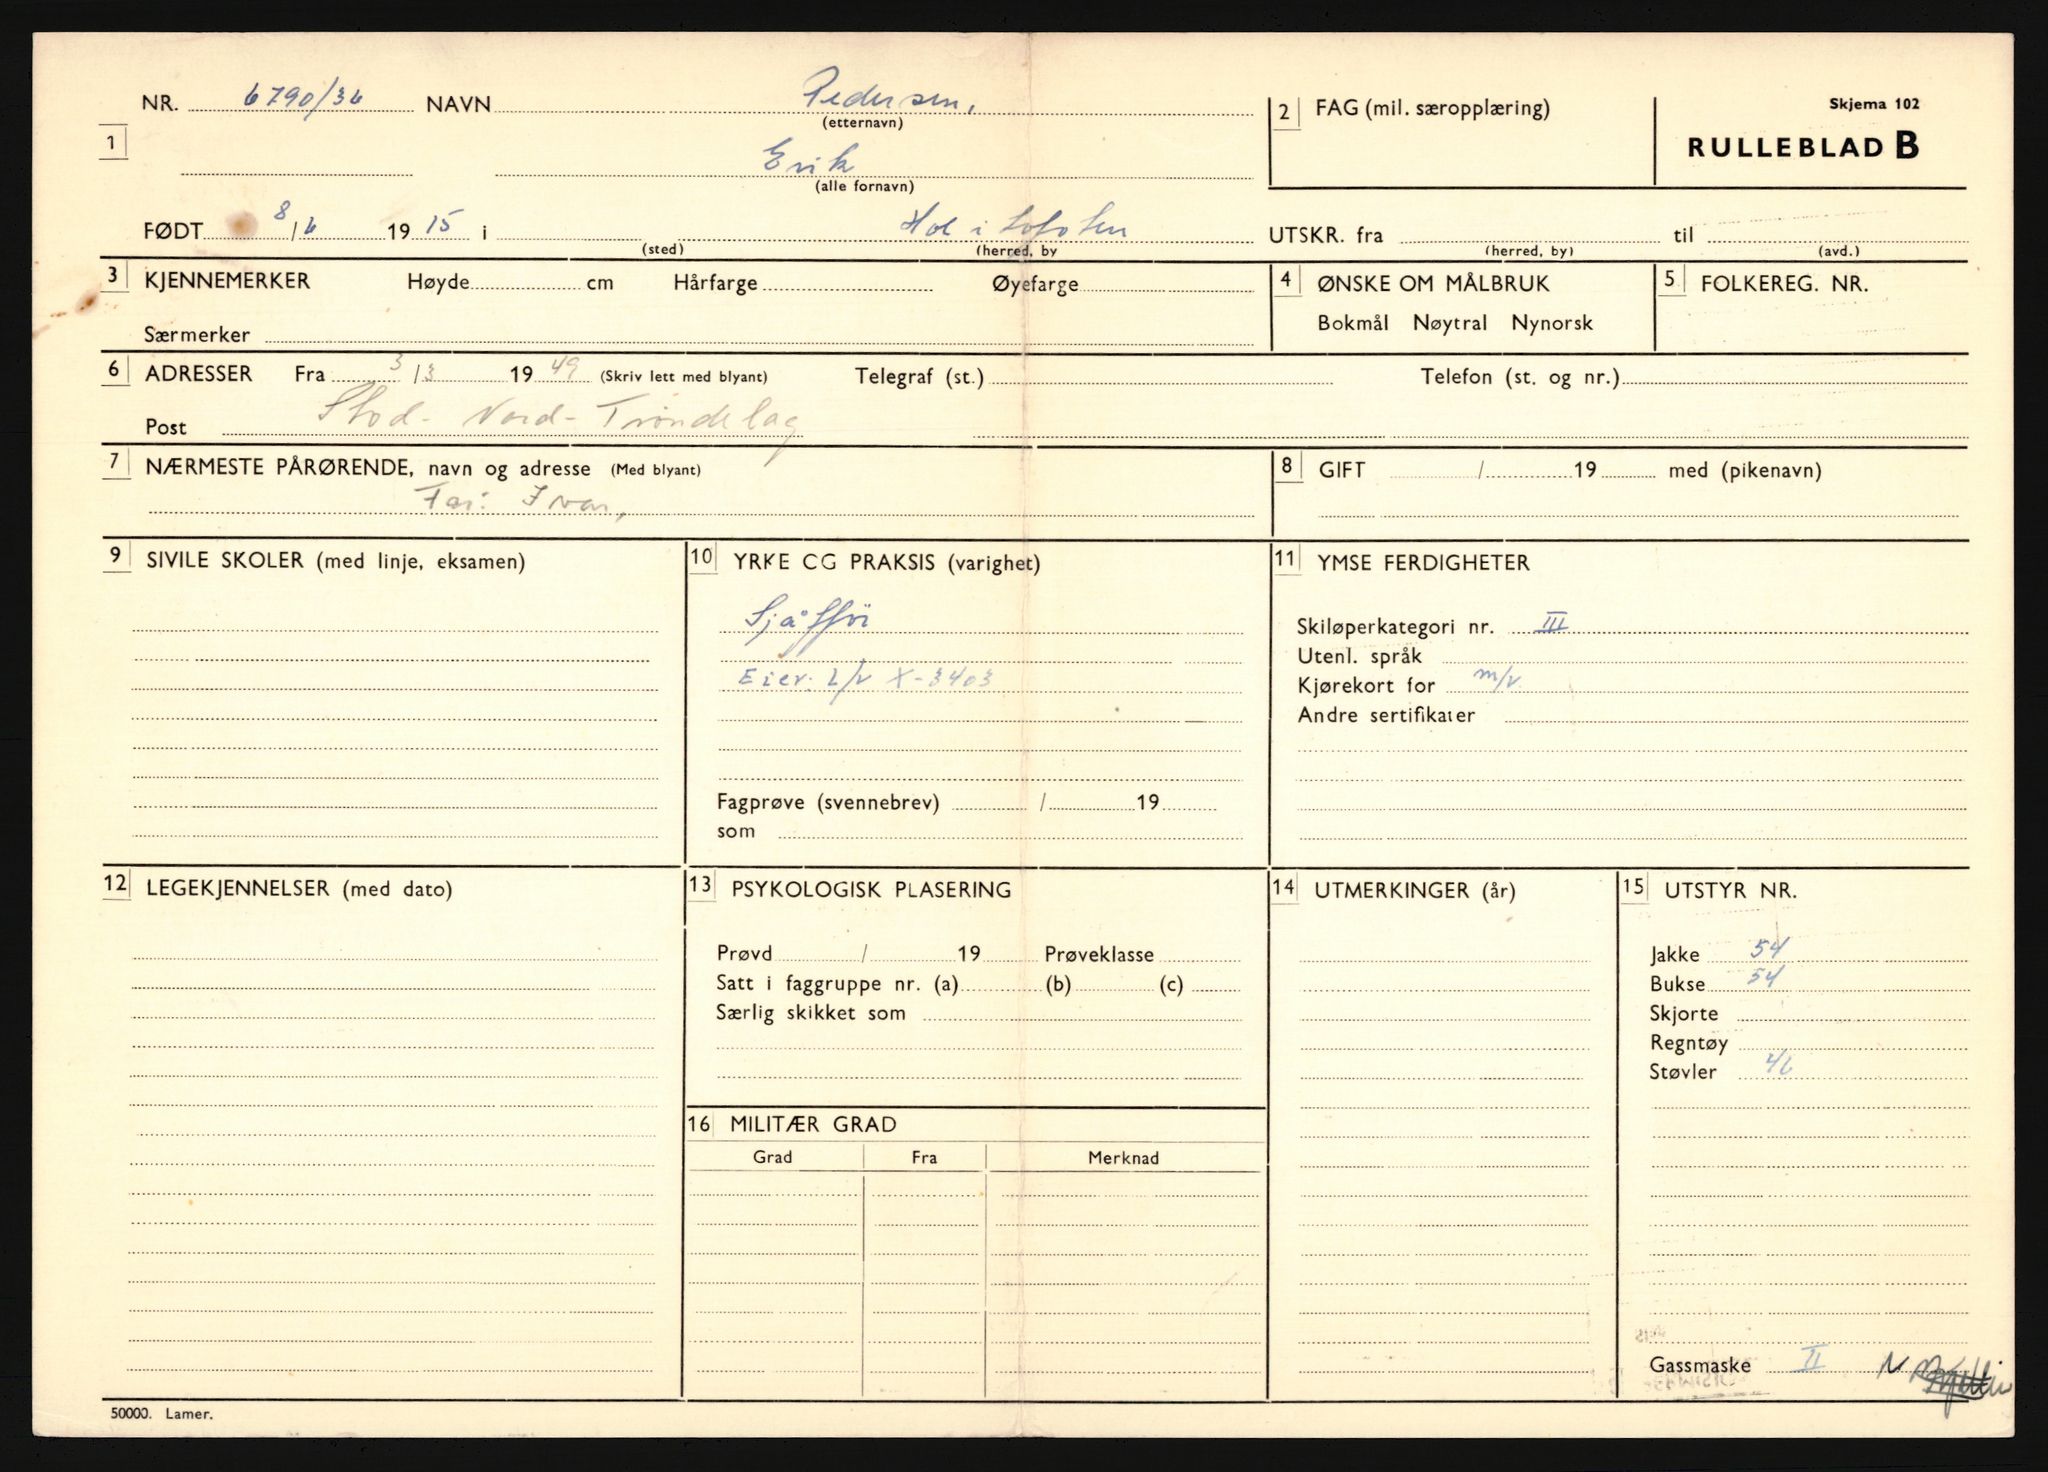 NR. 6790/36 NAVN Pedersen,
(etternavn)
2 FAG (mil. særopplæring)
Skjema 102
RULLEBLAD B
1
Erik
(alle fornavn)
FØDT 8/6 1915 i Hol i Lofoten
(sted) (herred, by
UTSKR. fra til
(herred, by) (avd.)
3 KJENNEMERKER Høyde cm Hårfarge Øyefarge
Særmerker
4 ØNSKE OM MÅLBRUK
Bokmål Nøytral Nynorsk
5 FOLKEREG. NR.
6 ADRESSER Fra 3/3 1949 (Skriv lett med blyant) Telegraf (st.) Telefon (st. og nr.)
Post Stod - Nord-Trøndelag
7 NÆRMESTE PÅRØRENDE, navn og adresse (Med blyant)
Far: Ivar,
8 GIFT / 19 med (pikenavn)
9 SIVILE SKOLER (med linje, eksamen)
10 YRKE CG PRAKSIS (varighet)
Sjåffør
Eier: L/v X-3403
Fagprøve (svennebrev) / 19
som
11 YMSE FERDIGHETER
Skiløperkategori nr. III
Utenl. språk
Kjørekort for m/v.
Andre sertifikater
12 LEGEKJENNELSER (med dato)
13 PSYKOLOGISK PLASERING
Prøvd / 19 Prøveklasse
Satt i faggruppe nr. (a) (b) (c)
Særlig skikket som
14 UTMERKINGER (år)
15 UTSTYR NR.
Jakke 54
Bukse 54
Skjorte
Regntøy
Støvler 46
16 MILITÆR GRAD
Grad Fra Merknad
Gassmaske II N
50000. Lamer.